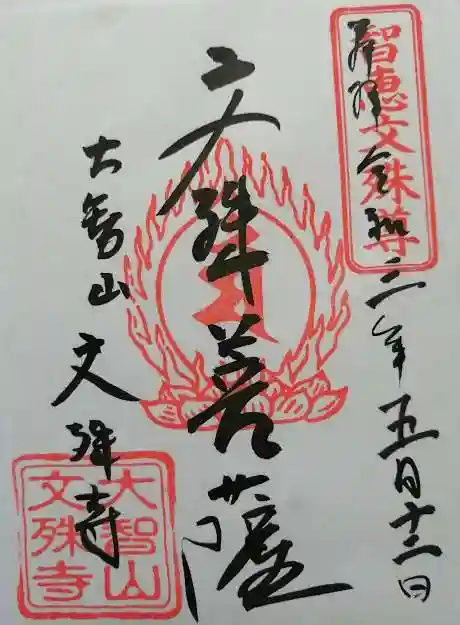 奉拝 令和三年五月十二日
智恵文殊尊
文殊菩薩
大智山 文殊寺
大智山
文殊寺